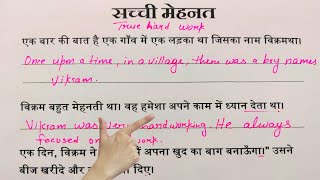 सच्ची मेहनत
True hard work
एक बार की बात है एक गाँव में एक लड़का था जिसका नाम विक्रमथा।
Once upon a time, in a village, there was a boy names
Vikram.
विक्रम बहुत मेहनती था। वह हमेशा अपने काम में ध्यान देता था।
Vikram was very hardworking. He always
focused on work.
एक दिन, विक्रम ने में अपना खुद का बाग बनाऊँगा।" उसने
बीज खरीदे और दिए।